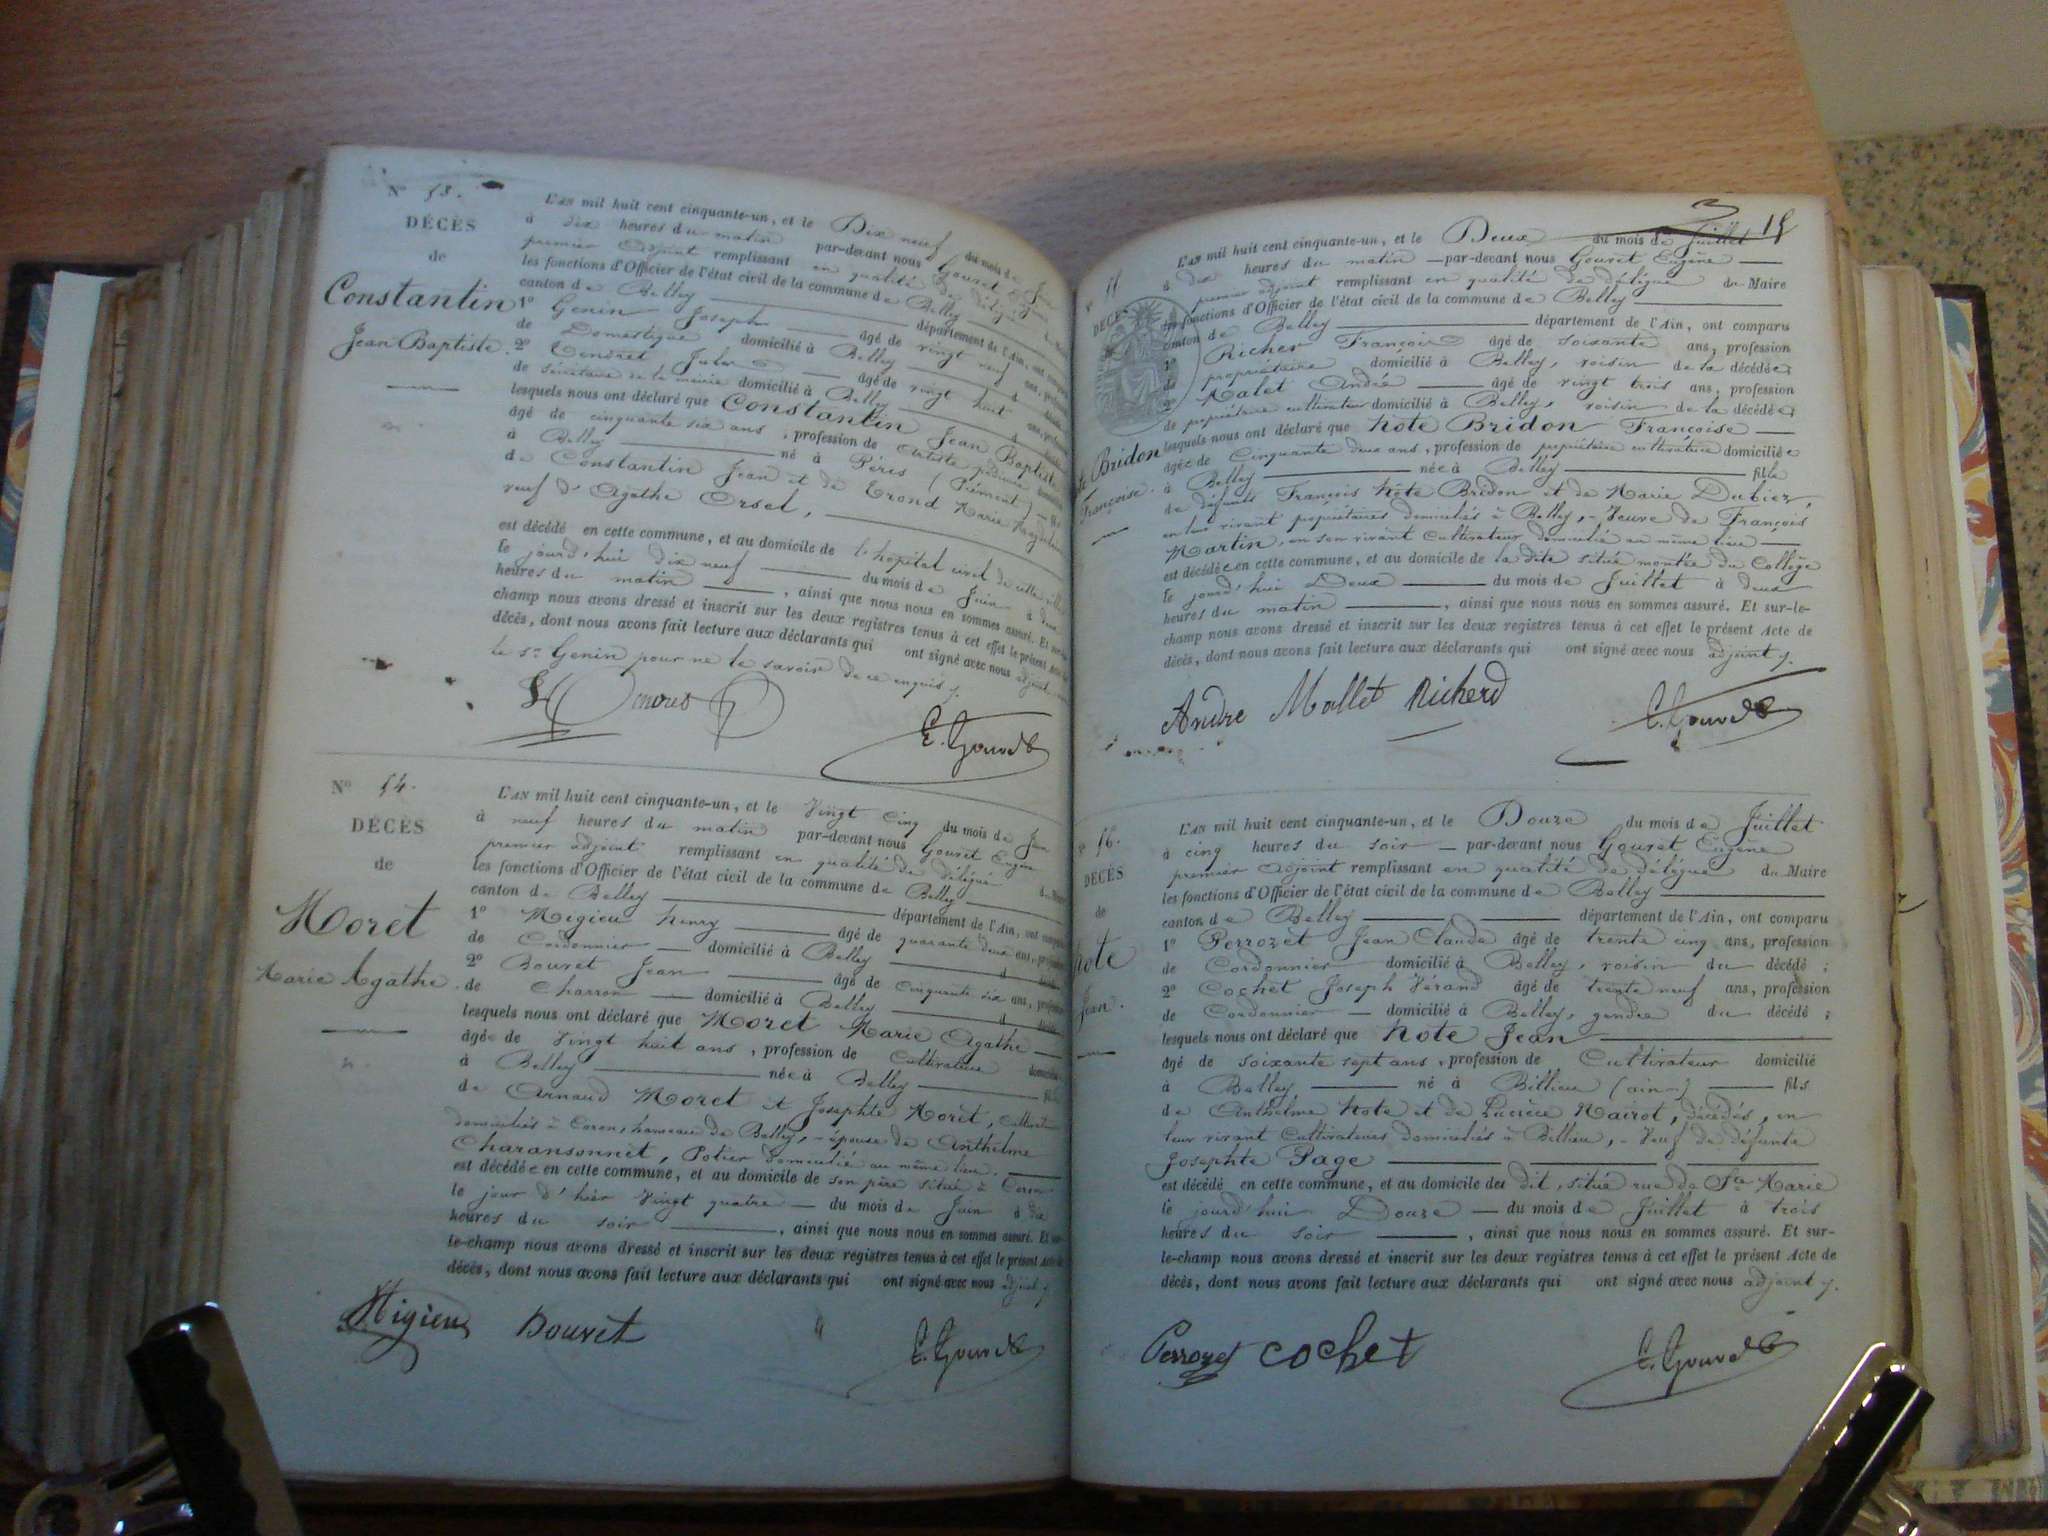 N° 53.
DÉCÈS
de
Constantin
Jean Baptiste.
L'AN mil huit cent cinquante-un, et le Dix neuf du mois de
à dix heures du matin par-devant nous Gouvet
premier adjoint remplissant en qualité de délégué
les fonctions d'Officier de l'état civil de la commune de Belley
canton de Belley département de l'Ain, ont
1° Genin Joseph âgé de vingt neuf ans,
de Domestique domicilié à Belley
2° Tendret Jules âgé de vingt huit ans,
de secrétaire de la mairie domicilié à Belley
lesquels nous ont déclaré que Constantin Jean Baptiste
âgé de cinquante six ans, profession de Artiste
à Belley né à (Piémont)
de Constantin Jean et de Trond Marie Magdelaine
veuf d'Agathe Orsel,
est décédé en cette commune, et au domicile de l'hopital civil de cette ville
le jourd'hui dix neuf du mois de Juin à deux
heures du matin, ainsi que nous nous en sommes assuré. Et sur-le-
champ nous avons dressé et inscrit sur les deux registres tenus à cet effet le présent Acte
décès, dont nous avons fait lecture aux déclarants qui ont signé avec nous adjoint
le Sr Genin pour ne le savoir de ce enquis
E. Gouvet
N° 54.
DÉCÈS
de
Moret
Marie Agathe.
L'AN mil huit cent cinquante-un, et le Vingt Cinq du mois de Juin
à neuf heures du matin par-devant nous Gouvet Eugène
premier adjoint remplissant en qualité de délégué
les fonctions d'Officier de l'état civil de la commune de Belley
canton de Belley département de l'Ain, ont comparu
1° Migieu henry âgé de quarante deux ans,
de Cordonnier domicilié à Belley
2° Bouvet Jean âgé de Cinquante six ans,
de Charron domicilié à Belley
lesquels nous ont déclaré que Moret Marie Agathe
âgée de Vingt huit ans, profession de Cultivateur
à Belley née à Belley
de Arnaud Moret et Josephte Moret,
domiciliés à Coron, hameau de Belley, - épouse de Anthelme
Charansonnet, Potier domicilié au même lieu.
est décédée en cette commune, et au domicile de son père situé à Coron
le jour d'hier Vingt quatre du mois de Juin à dix
heures du soir, ainsi que nous nous en sommes assuré. Et sur-
le-champ nous avons dressé et inscrit sur les deux registres tenus à cet effet le présent Acte
décès, dont nous avons fait lecture aux déclarants qui ont signé avec nous adjoint
Migieu Bouvet E. Gouvet
15
55.
DÉCÈS
Bridon
Françoise.
L'AN mil huit cent cinquante-un, et le Deux du mois de Juillet
à dix heures du matin par-devant nous Gouvet Eugène
premier adjoint remplissant en qualité de délégué du Maire
les fonctions d'Officier de l'état civil de la commune de Belley
canton de Belley département de l'Ain, ont comparu
1° Richer François âgé de soixante ans, profession
de propriétaire domicilié à Belley, voisin de la décédée;
2° Malet André âgé de vingt trois ans, profession
de propriétaire cultivateur domicilié à Belley, voisin de la décédée;
lesquels nous ont déclaré que hôte Bridon Françoise
âgée de Cinquante deux ans, profession de propriétaire cultivateur domiciliée
à Belley née à Belley fille
de défunts François hôte Bridon et de Marie Dubier
en leur vivant propriétaires domiciliés à Belley, - Veuve de François
Martin, en son vivant Cultivateur domicilié au même lieu
est décédée en cette commune, et au domicile de la dite située montée du Collège
le jourd'hui Deux du mois de Juillet à deux
heures du matin, ainsi que nous nous en sommes assuré. Et sur-le-
champ nous avons dressé et inscrit sur les deux registres tenus à cet effet le présent Acte de
décès, dont nous avons fait lecture aux déclarants qui ont signé avec nous adjoint
Andre Mallet Richerd E. Gouvet
56.
DÉCÈS
de
hote
Jean.
L'AN mil huit cent cinquante-un, et le Douze du mois de Juillet
à cinq heures du soir par-devant nous Gouvet Eugène
premier adjoint remplissant en qualité de délégué du Maire
les fonctions d'Officier de l'état civil de la commune de Belley
canton de Belley département de l'Ain, ont comparu
1° Perrozet Jean Claude âgé de trente cinq ans, profession
de Cordonnier domicilié à Belley, voisin du décédé;
2° Cochet Joseph Vérand âgé de trente neuf ans, profession
de Cordonnier domicilié à Belley, gendre du décédé;
lesquels nous ont déclaré que hote Jean
âgé de soixante sept ans, profession de Cultivateur domicilié
à Belley né à Billieu (ain) fils
de Anthelme hote et de Lucrèce Mairot, décédés, en
leur vivant Cultivateurs domiciliés à Billieu, - Veuf de défunte
Josephte Page
est décédé en cette commune, et au domicile du dit, situé rue de Ste Marie
le jourd'hui Douze du mois de Juillet à trois
heures du soir, ainsi que nous nous en sommes assuré. Et sur-
le-champ nous avons dressé et inscrit sur les deux registres tenus à cet effet le présent Acte de
décès, dont nous avons fait lecture aux déclarants qui ont signé avec nous adjoint
Perrozet cochet E. Gouvet